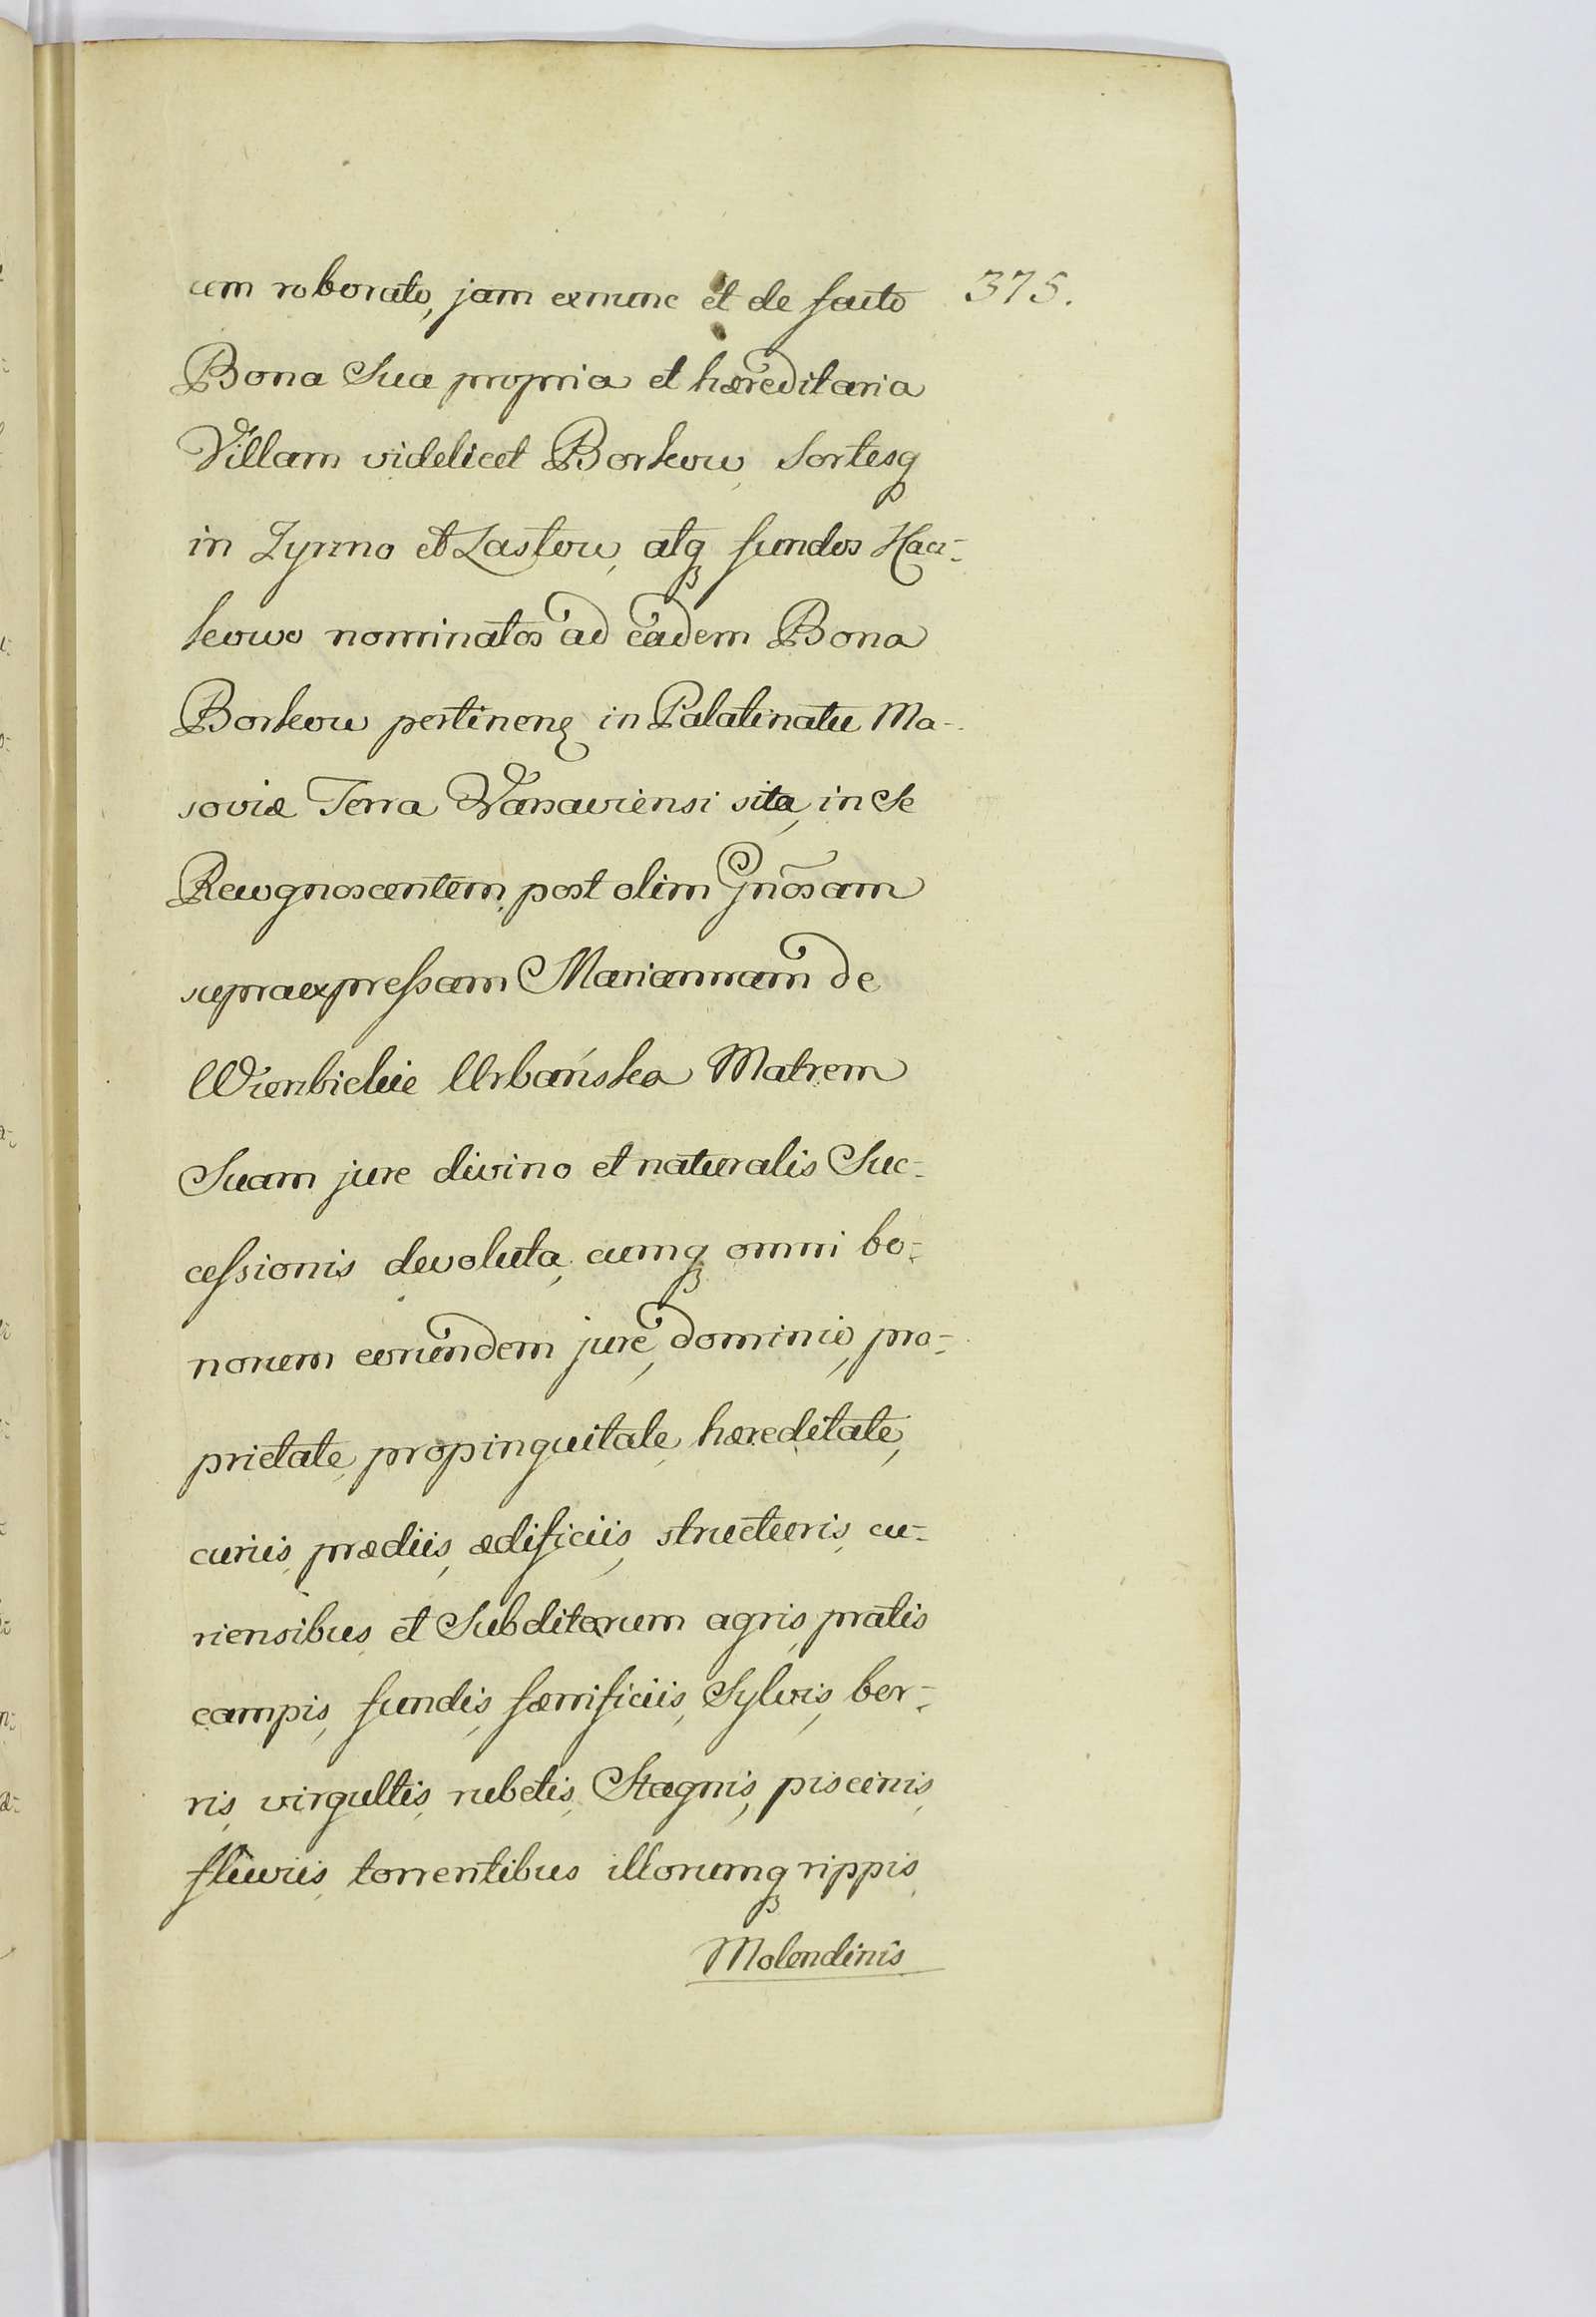 um roborato, jam exnunc et de facto 375.
Bona Sua propria et hæreditaria
Villam videlicet Borkow, Sortesq
in Zyrzno et Zastow, atq fundos Hac-
kowo nominatos ad eadem Bona
Borkow pertinen in Palatinatu Ma-
soviæ Terra Varsaviensi sita, in Se
Recognoscentem, post olim Gnosam
supraexpressam Mariannam de
Wierzbickie Urbańska Matrem
Suam jure divino et naturalis Suc-
cessionis devoluta, cumq omni bo-
norum eorundem jure, dominio, pro-
prietate, propinquitate, hæreditate,
curiis, prædiis, ædificiis, structuris, cu-
riensibus et Subditorum agris, pratis
campis, fundis, fœnificiis, Sylvis, bor-
ris, virgultis, rubetis, Stagnis, piscinis,
fluviis, torrentibus illorumq rippis,
Molendinis